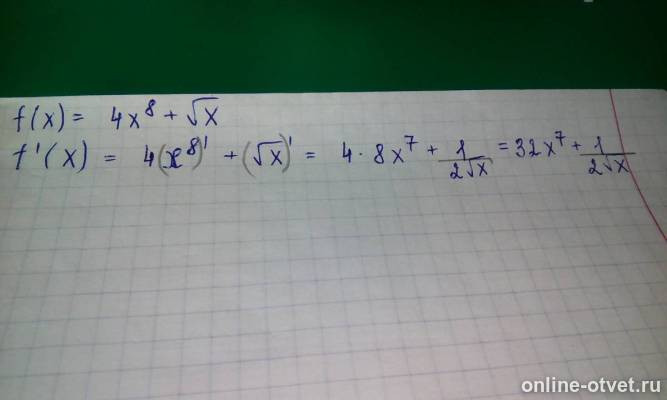 f(x) = 4x⁸ + √x
f'(x) = 4(x⁸)' + (√x)' = 4 · 8x⁷ + 1/(2√x) = 32x⁷ + 1/(2√x)
online-otvet.ru